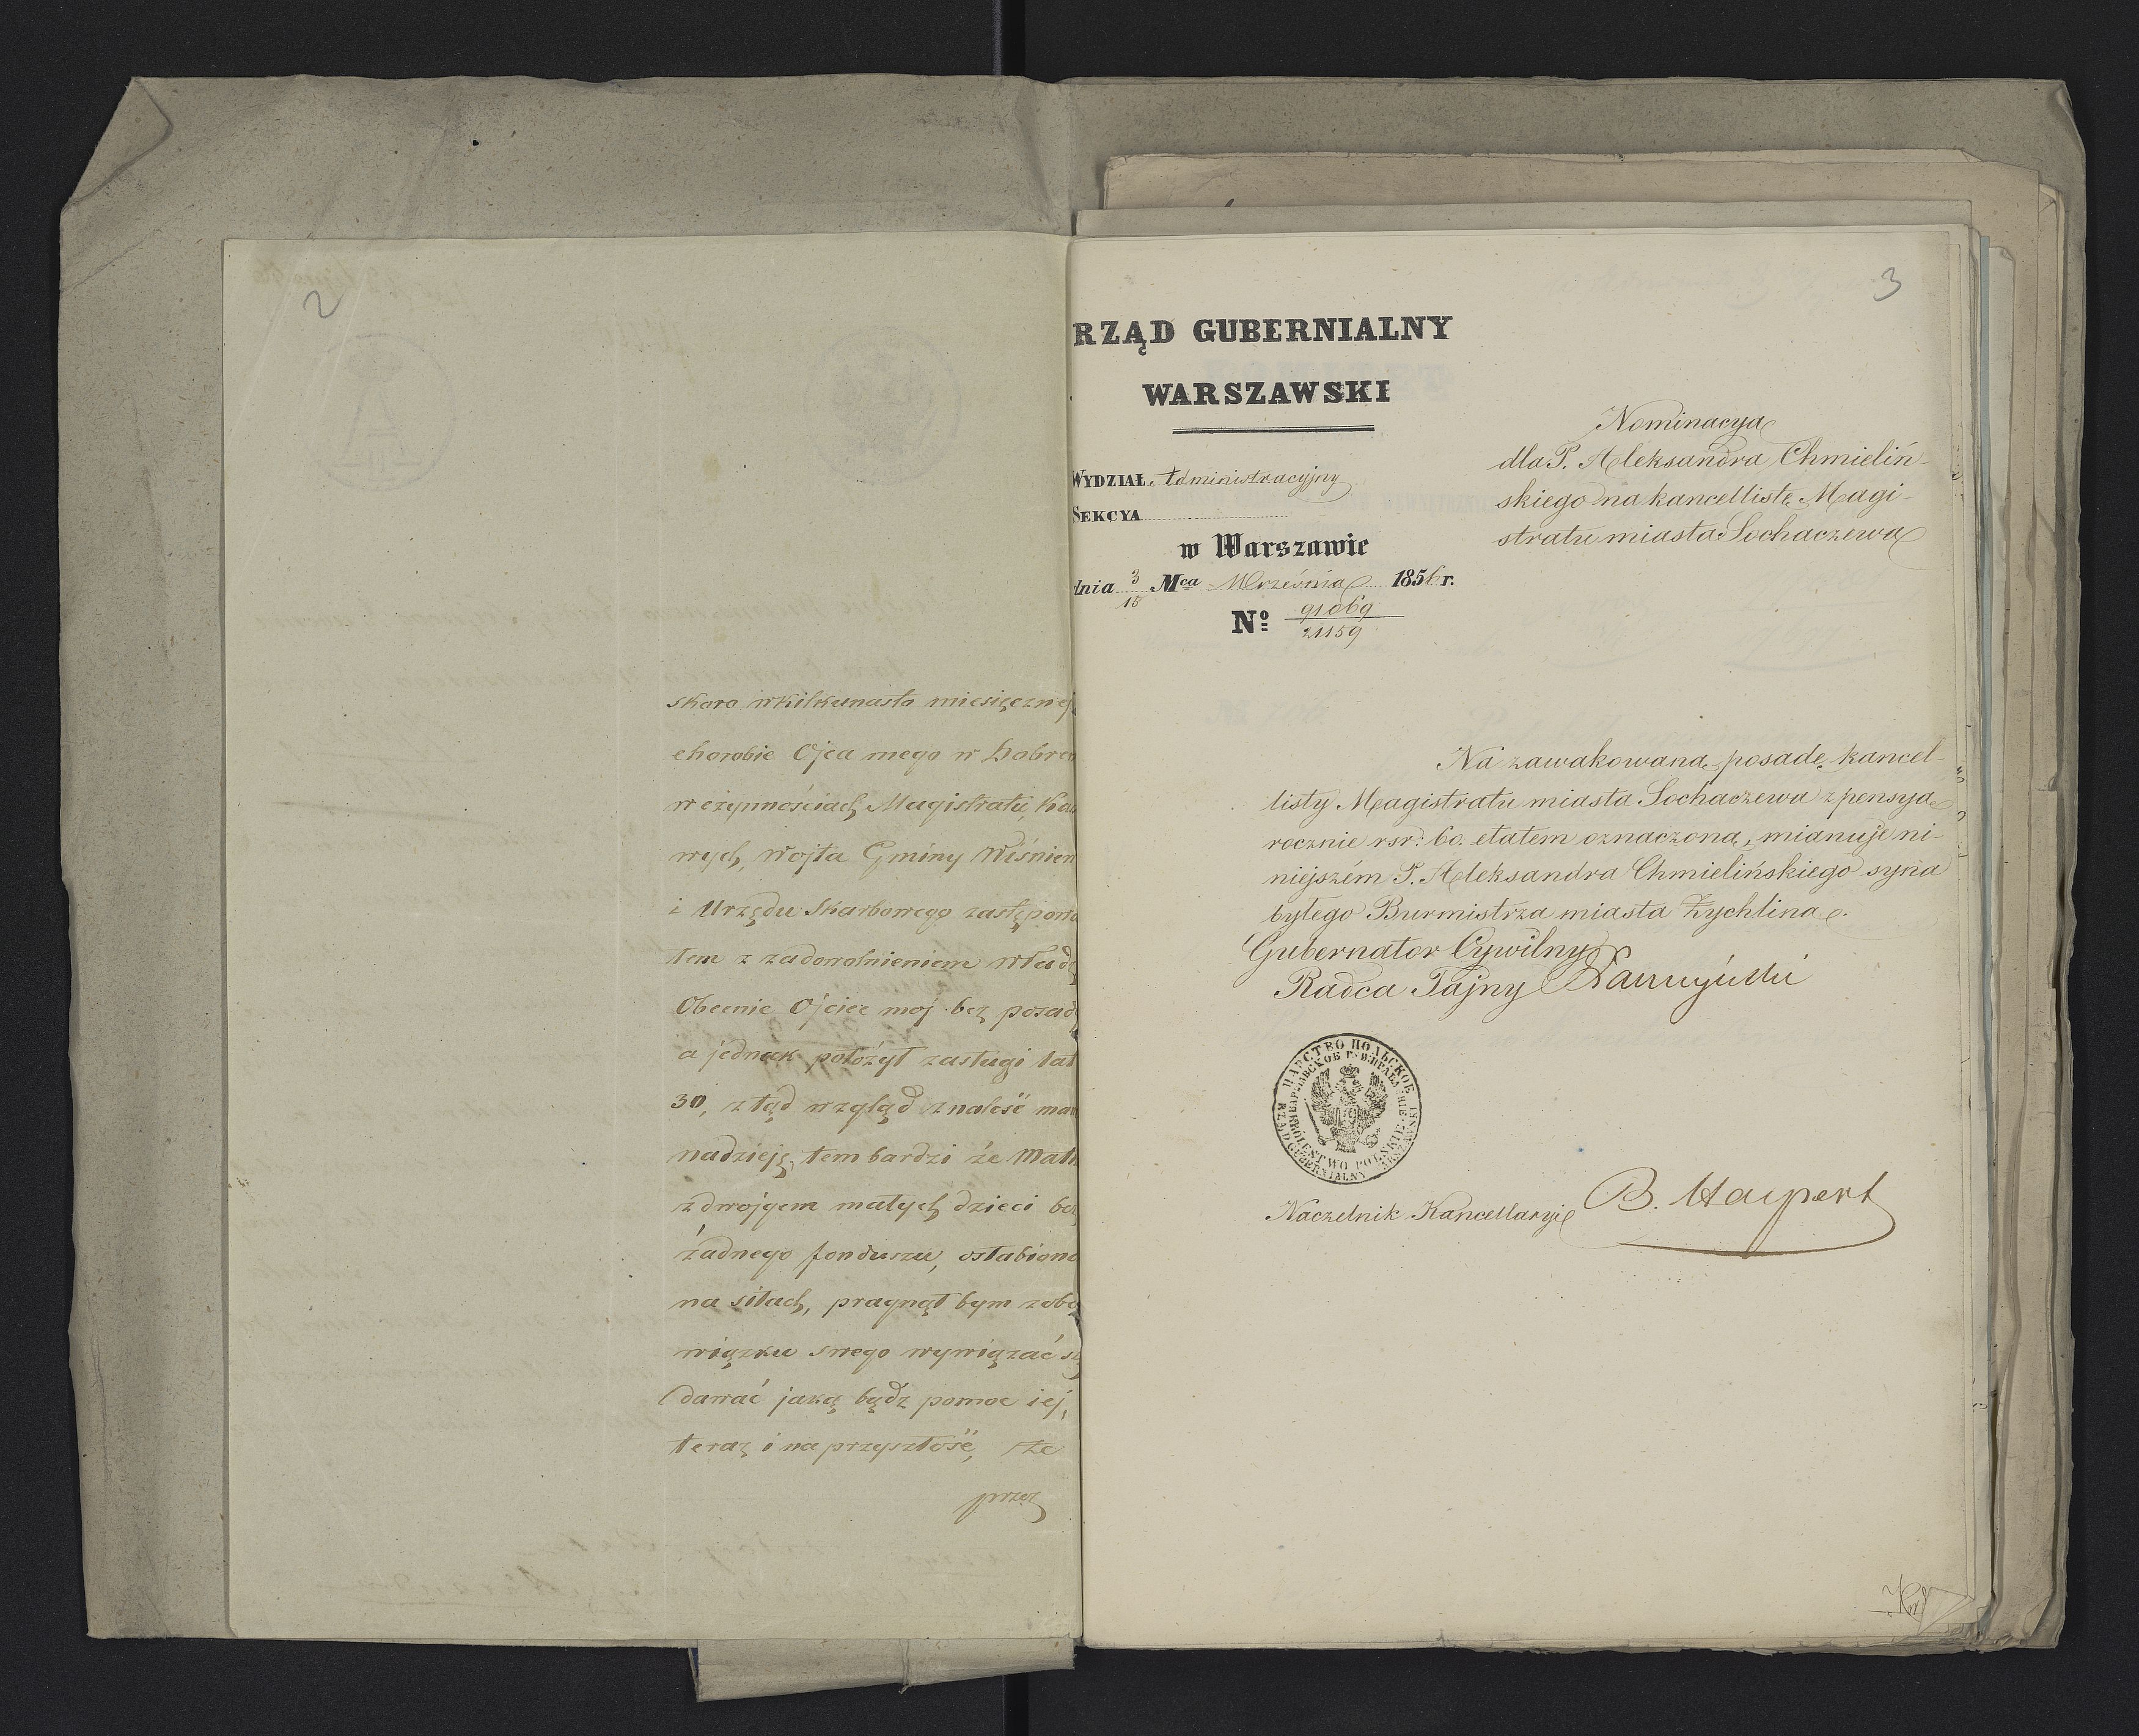 2
skoro w kilkunasto miesięcznej
chorobie Ojca mego w Dobre
w czynnościach Magistratu, Ka
wych, Wojta Gminy Wiśniew
i Urzędu Skarbowego zastępowa
łem z zadowolnieniem Władz
Obecnie Ojciec moj bez posad
a jednak położył zasługi lat
30, ztąd wzgląd znaleść mam
nadzieję, tem bardzi że Matk
z dwojgem małych dzieci bez
żadnego funduszu, osłabiona
na siłach, pragnął bym zobo
wiązku swego wywiązać się
dawać jaką bądz pomoc iej,
teraz i na przyszłość, że
przez
3
RZĄD GUBERNIALNY
WARSZAWSKI
WYDZIAŁ Administracyjny
SEKCYA
w Warszawie
dnia 3/15 Mca Września 1856 r.
No 91069/21159
Nominacya
dla P. Aleksandra Chmieliń-
skiego na kancellistę Magi-
stratu miasta Sochaczewa
Na zawakowaną posadę kancel-
listy Magistratu miasta Sochaczewa z pensyą
rocznie rsr: 60. etatem oznaczoną, mianuje ni-
niejszém P. Aleksandra Chmielińskiego syna
byłego Burmistrza miasta Żychlina.
Gubernator Cywilny
Radca Tajny
ЦАРСТВО ПОЛЬСКОЕ
ВАРШАВСКОЕ ГУБ. ПРАВЛЕНІЕ
KRÓLESTWO POLSKIE
RZĄD GUBERNIALNY WARSZAWSKI
Naczelnik Kancellaryi B. Halpert